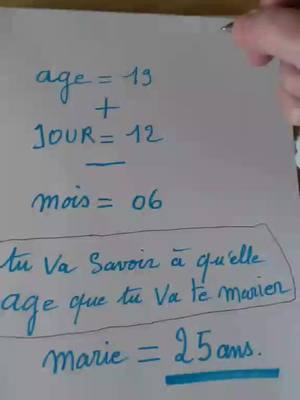 age = 19
+
JOUR = 12
—
mois = 06
tu va savoir à qu'elle
age que tu va te marier
marie = 25 ans.